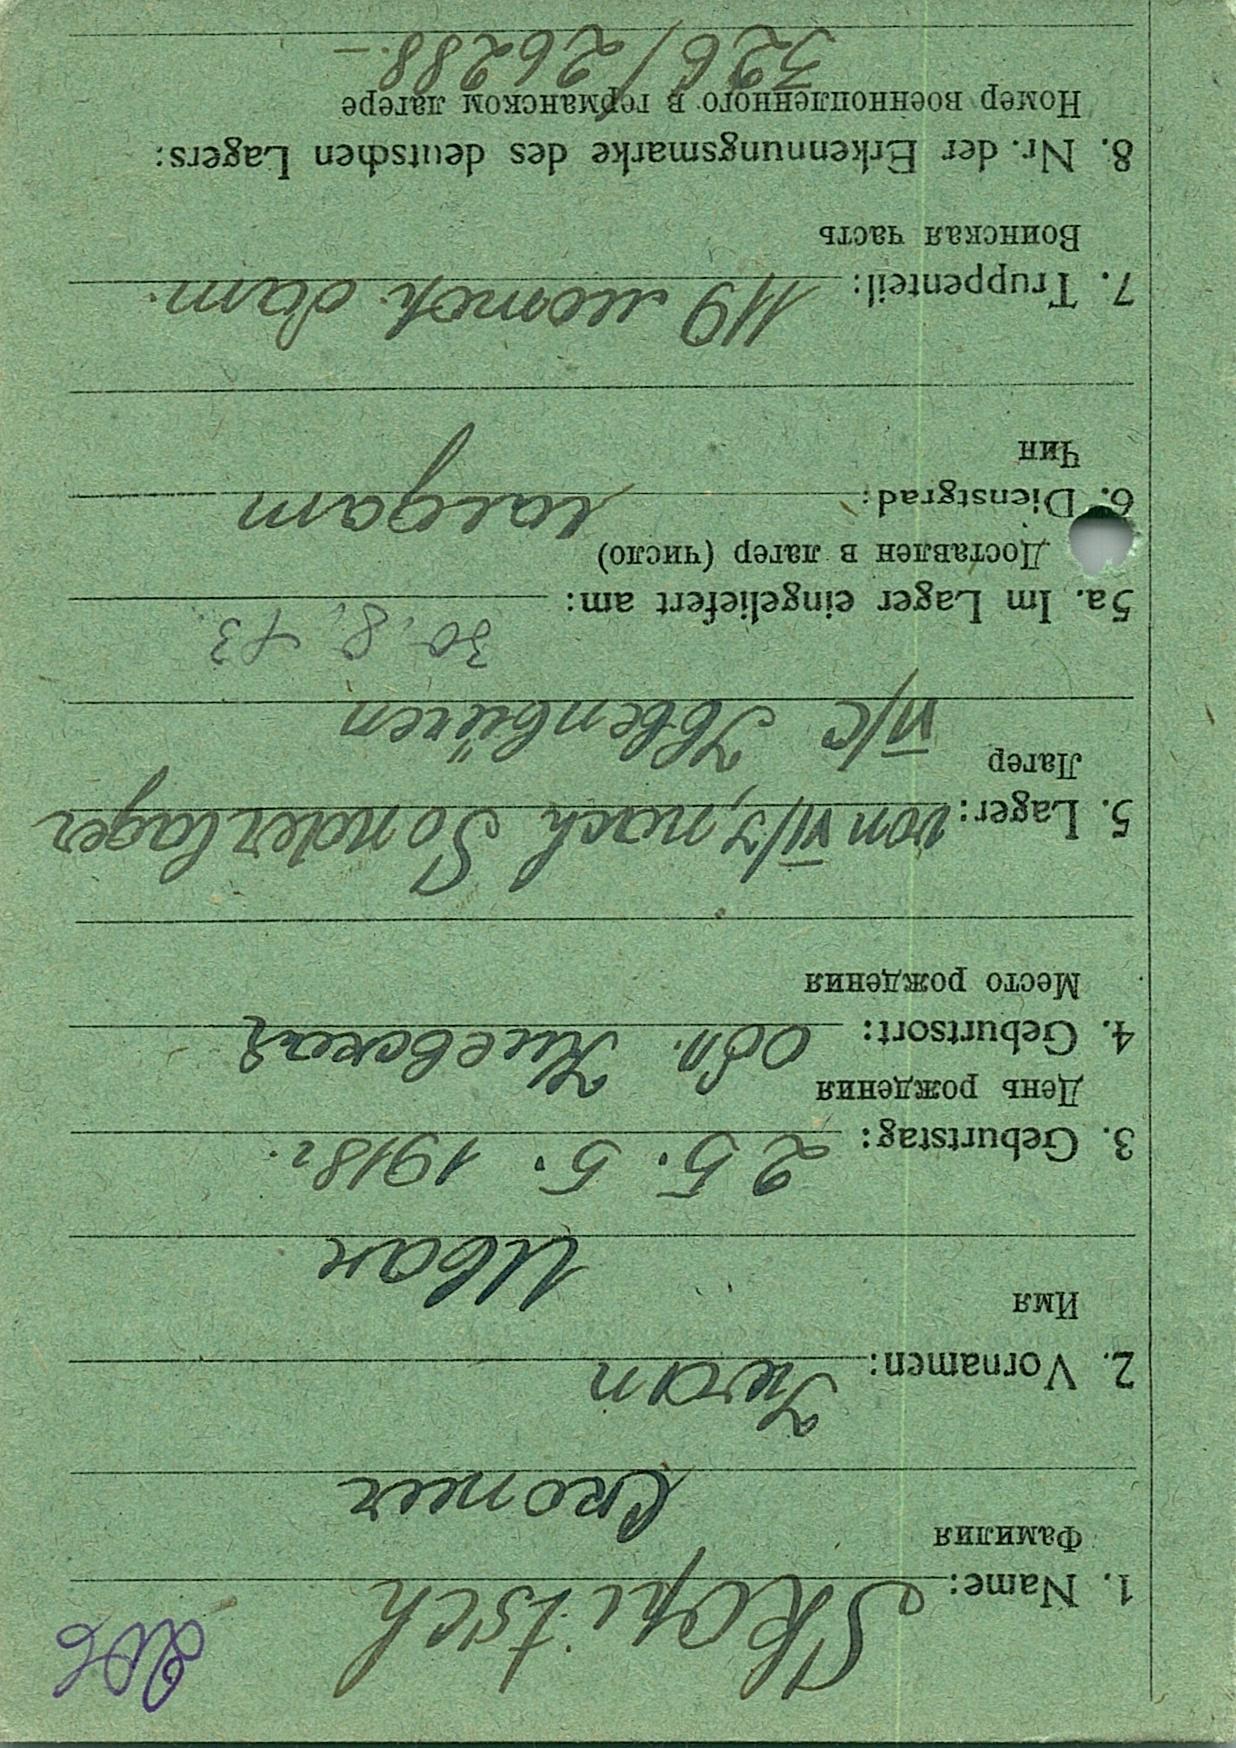 1. Name: Skopitsch
Фамилия
2. Vornamen: Iwan
Имя
Иван
3. Geburtstag: 25. 5. 1918 г.
День рождения
4. Geburtsort: обл. Киевская
Место рождения
5. Lager: von VI/J, nach Sonderlager
Лагер
VI/C Ibbenbüren
5a. Im Lager eingeliefert am: 30. 8. 43.
Доставлен в лагер (число)
6. Dienstgrad: солдат
Чин
7. Truppenteil: 119 батн.
Воинская часть
8. Nr. der Erkennungsmarke des deutschen Lagers:
Номер военнопленного в германском лагере
326/26288.-